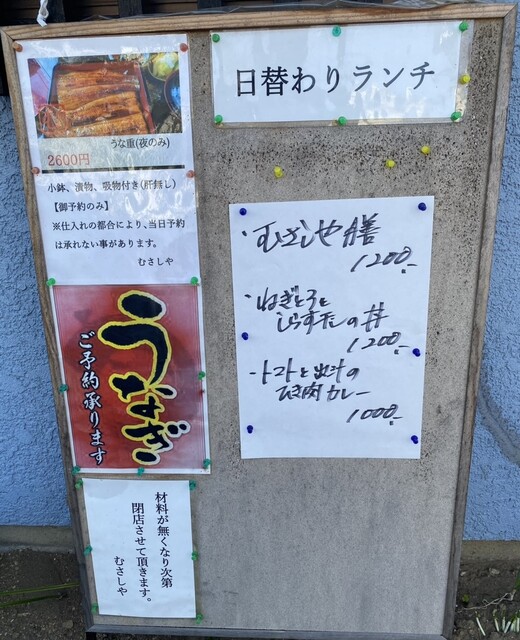 うな重(夜のみ)
2600円
小鉢、漬物、吸物付き(肝無し)
【御予約のみ】
※仕入れの都合により、当日予約
は承れない事があります。
むさしや
うなぎ
ご予約承ります
材料が無くなり次第
閉店させて頂きます。
むさしや
日替わりランチ
・むさしや膳
1200.-
・ねぎとろと
しらす
の丼
1200.-
・トマトと出汁の
ひき肉カレー
1000.-